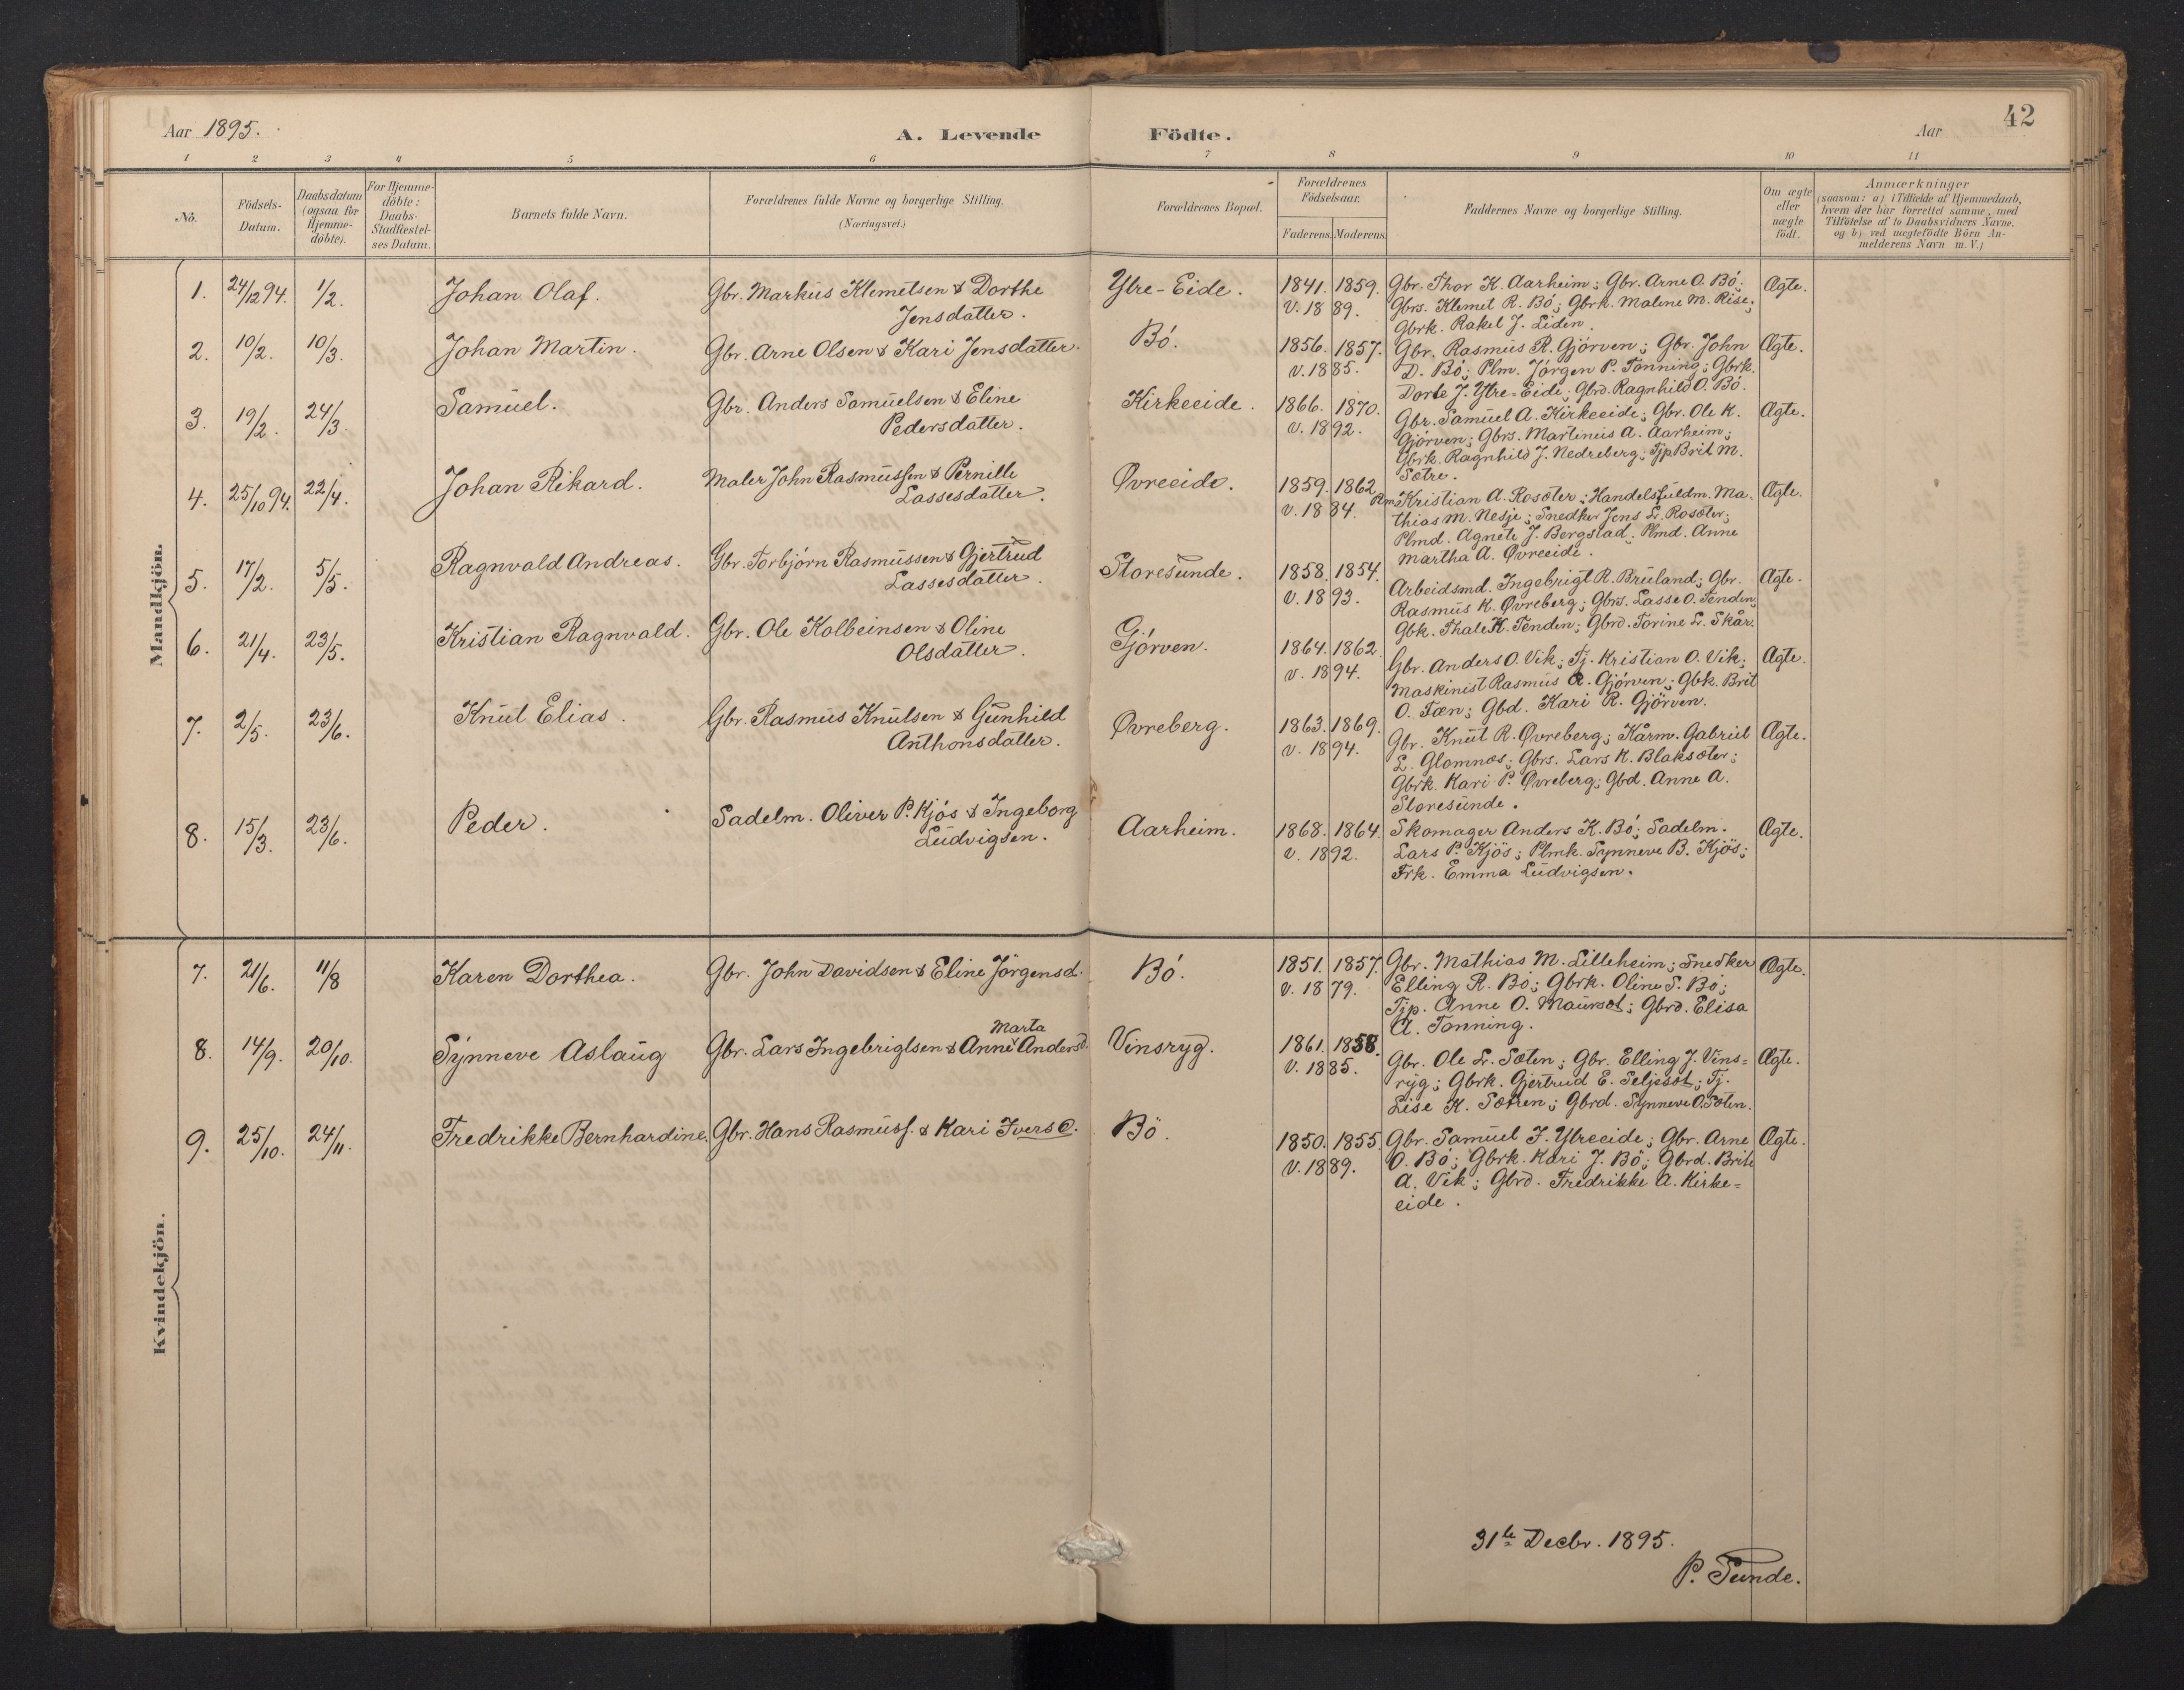 42
Aar 1895.
A. Levende Födte.
Aar
1 2 3 4 5 6 7 8 9 10 11
No.
Födsels-
Datum.
Daabsdatum
(ogsaa for
Hjemme-
döbte).
For Hjemme-
döbte:
Daabs-
Stadfæstel-
ses Datum.
Barnets fulde Navn.
Forældrenes fulde Navne og borgerlige Stilling.
(Næringsvei.)
Forældrenes Bopæl.
Forældrenes
Födselsaar.
Faderens. Moderens.
Faddernes Navne og borgerlige Stilling.
Om ægte
eller
uægte
födt.
Anmærkninger
(saasom: a) i Tilfælde af Hjemmedaab,
hvem der har forrettet samme, med
Tilföielse af to Daabsvidners Navne.
og b) ved uægtefödte Börn An-
melderens Navn m. V.)
Mandkjön.
1. 24/12 94. 1/2. Johan Olaf. Gbr. Markus Klemetsen & Dorthe
Jensdatter.
Ytre-Eide. 1841. 1859.
v. 1889.
Gbr. Thor K. Aarheim; Gbr. Arne O. Bö;
Gbrs. Klemet R. Bö; Gbrk. Malene M. Rise;
Gbrk. Rakel J. Liden.
Ægte.
2. 10/2. 10/3. Johan Martin. Gbr. Arne Olsen & Kari Jensdatter.
Bö. 1856. 1857.
v. 1885.
Gbr. Rasmus R. Gjörven; Gbr. John
D. Bö; Plm. Jörgen P. Tonning; Gbrk.
Dorte J. Ytre-Eide; Gbrd. Ragnhild O. Bö.
Ægte.
3. 19/2. 24/3. Samuel. Gbr. Anders Samuelsen & Eline
Pedersdatter.
Kirkeeide. 1866. 1870.
v. 1892.
Gbr. Samuel A. Kirkeeide; Gbr. Ole K.
Gjörven; Gbrs. Martinus A. Aarheim;
Gbrk. Ragnhild J. Nedreberg; Tjp Brit M.
Sætre.
Ægte.
4. 25/10 94. 22/4. Johan Rikard. Maler John Rasmussen & Pernille
Lassesdatter.
Øvreeide. 1859. 1862.
v. 1884.
Plm Kristian A. Rosæter; Handelsfuldm. Ma-
thias M. Nesje; Snedker Jens L. Rosæter;
Plmd. Agnete J. Bergstad; Plmd. Anne
Martha A. Øvreeide.
Ægte.
5. 17/2. 5/5. Ragnvald Andreas. Gbr. Torbjörn Rasmussen & Gjertrud
Lassesdatter.
Storesunde. 1858. 1854.
v. 1893.
Arbeidsmd. Ingebrigt R. Bruland; Gbr.
Rasmus K. Øvreberg; Gbrs. Lasse O. Tenden;
Gbk. Thale K. Tenden; Gbrd. Torine L. Skår.
Ægte.
6. 21/4. 23/5. Kristian Ragnvald. Gbr. Ole Kolbeinsen & Oline
Olsdatter.
Gjörven. 1864. 1862.
v. 1894.
Gbr. Anders O. Vik; Tj. Kristian O. Vik;
Maskinist Rasmus A. Gjörven; Gbk. Brit
O. Tæn; Gbd. Kari R. Gjörven.
Ægte.
7. 2/5. 23/6. Knut Elias. Gbr. Rasmus Knutsen & Gunhild
Anthonsdatter.
Øvreberg. 1863. 1869.
v. 1894.
Gbr. Knut R. Øvreberg; Kårm. Gabriel
L. Glomnæs; Gbrs. Lars K. Blaksæter;
Gbrk. Kari P. Øvreberg; Gbd. Anne A.
Storesunde.
Ægte.
8. 15/3. 23/6. Peder. Sadelm. Oliver P. Kjös & Ingeborg
Ludvigsen.
Aarheim. 1868. 1864.
v. 1892.
Skomager Anders K. Bö; Sadelm.
Lars P. Kjös; Plmk. Synneve B. Kjös;
Frk. Emma Ludvigsen.
Ægte.
Kvindekjön.
7. 21/6. 11/8 Karen Dorthea. Gbr. John Davidsen & Eline Jörgensd.
Bö. 1851. 1857.
v. 1879.
Gbr. Mathias M. Lilleheim; Snedker
Elling R. Bö; Gbrk. Oline S. Bö;
Tjp. Anne O. Maurset; Gbrd. Elisa
A. Tonning.
Ægte.
8. 14/9. 20/10. Synneve Aslaug Gbr. Lars Ingebrigtsen & Anne Marta Andersd.
Vinsryg. 1861. 1858.
v. 1885.
Gbr. Ole L. Sæten; Gbr. Elling J. Vins-
ryg; Gbrk. Gjertrud E. Seljeset; Tj.
Lise K. Sætren; Gbrd. Synneve O. Sæten.
Ægte.
9. 25/10. 24/11. Fredrikke Bernhardine. Gbr. Hans Rasmuss. & Kari Iversd.
Bö. 1850. 1855.
v. 1889.
Gbr. Samuel J. Ytreeide; Gbr. Arne
O. Bö; Gbrk. Kari J. Bö; Gbrd. Brite
A. Vik; Gbrd. Fredrikke A. Kirke-
eide.
Ægte.
31te Decbr. 1895.
P. Sunde.